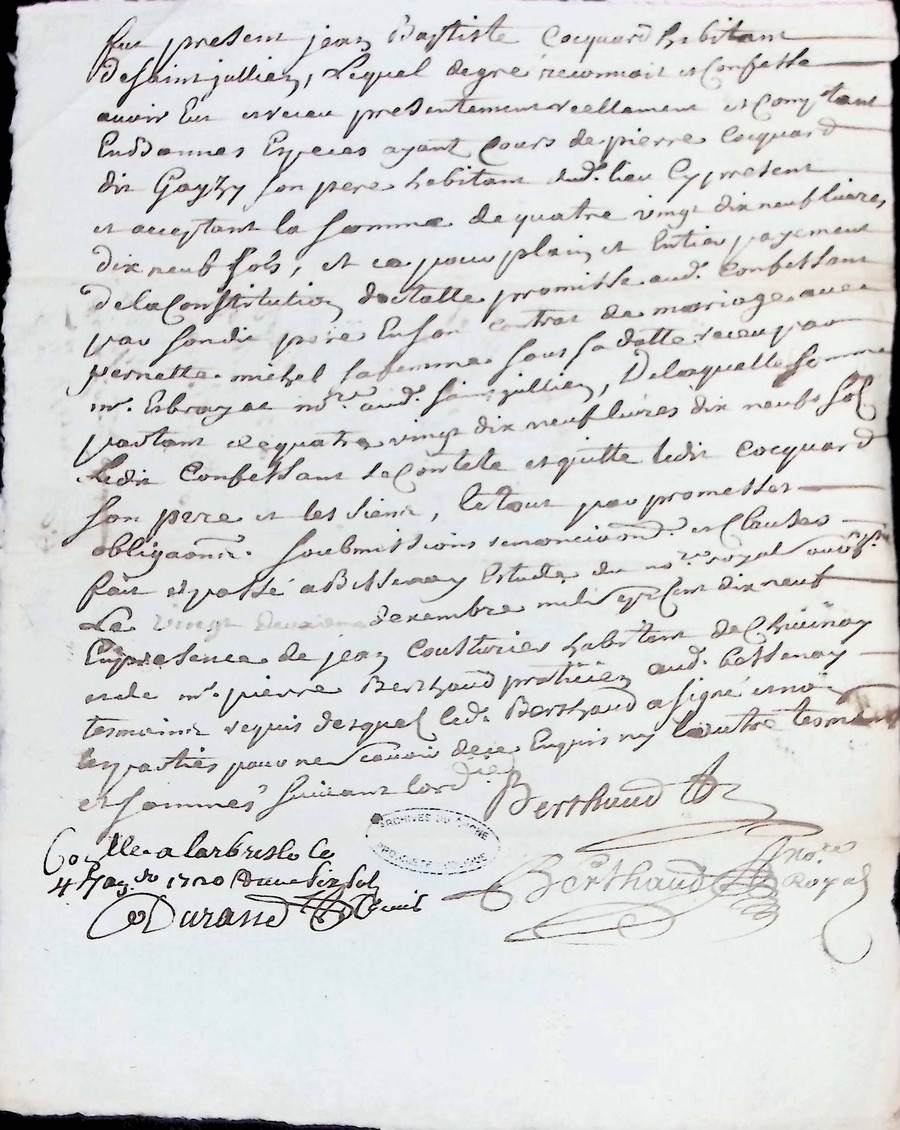 fut present jean Baptiste Cocquard habitant
de saint jullien, Lequel de gré reconnoit et Confesse
avoir Eu et receu presentement reellement et Comptant
En bonnes Especes ayant Cours de pierre Cocquard
dit Gayzy son pere habitant dud. lieu Cy present
et acceptant la somme de quatre vingt dix neuf livres
dix neuf sols, et ce pour plain et Entier payement
de la Constitution dottalle promisse aud. Confessant
par sondit pere En son contrat de mariage avec
pernette michel sa femme sous sa datte receu par
mr. Esbrayat nore. aud. saint jullien, De laquelle somme
partant de quatre vingt dix neuf livres dix neuf sol
Ledit Confessant se Contete et quitte ledit Cocquard
son pere et les siens, le tout par promesses
obligaons. soubmissions renonciaons. et Clauses
fait et passé a Bessenay Estude du nore. royal soub.
Le vingt deuxieme dexembre mil sept Cent dix neuf
En presence de jean Cousturier habitant de Chuinay
et de mr. pierre Berthaud praticien aud. bessenay
tesmoins requis desquels led. Berthaud a signé et non
les parties pour ne scavoir de ce Enquis ny l'autre tesmoin
et sommes suivant lord
Berthaud
ARCHIVES DU RHONE
Conlle. a larbresle le
4 1720 six sols
Durand
Berthaud nore
Royal